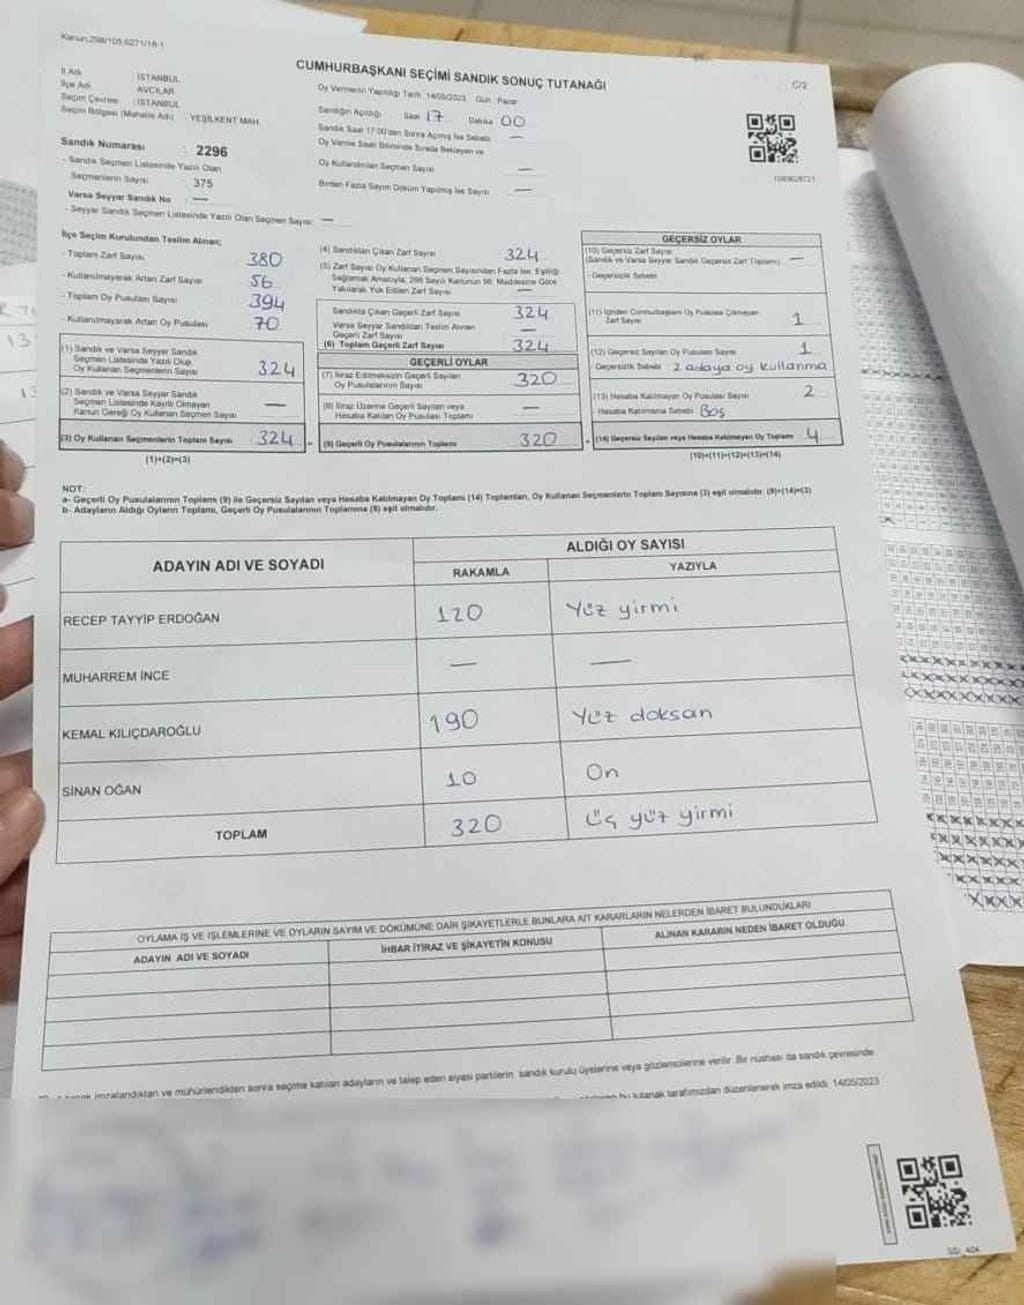 Kanun:298/105,6271/18-1
CUMHURBAŞKANI SEÇİMİ SANDIK SONUÇ TUTANAĞI
C/2
İl Adı : İSTANBUL
İlçe Adı : AVCILAR
Seçim Çevresi : İSTANBUL
Seçim Bölgesi (Mahalle Adı) : YEŞİLKENT MAH.
Oy Vermenin Yapıldığı Tarih: 14/05/2023 Gün: Pazar
Sandığın Açıldığı Saat 17 Dakika 00
Sandık Saat 17:00'den Sonra Açılmış İse Sebebi —
Oy Verme Saati Bitiminde Sırada Bekleyen ve
Oy Kullandırılan Seçmen Sayısı —
Birden Fazla Sayım Döküm Yapılmış İse Sayısı —
Sandık Numarası : 2296
- Sandık Seçmen Listesinde Yazılı Olan
Seçmenlerin Sayısı : 375
Varsa Seyyar Sandık No : —
- Seyyar Sandık Seçmen Listesinde Yazılı Olan Seçmen Sayısı: —
İlçe Seçim Kurulundan Teslim Alınan;
- Toplam Zarf Sayısı 380
- Kullanılmayarak Artan Zarf Sayısı 56
- Toplam Oy Pusulası Sayısı 394
- Kullanılmayarak Artan Oy Pusulası 70
(1) Sandık ve Varsa Seyyar Sandık
Seçmen Listesinde Yazılı Olup
Oy Kullanan Seçmenlerin Sayısı 324
(2) Sandık ve Varsa Seyyar Sandık
Seçmen Listesinde Kayıtlı Olmayan
Kanun Gereği Oy Kullanan Seçmen Sayısı —
(3) Oy Kullanan Seçmenlerin Toplam Sayısı 324
(1)+(2)=(3)
(4) Sandıktan Çıkan Zarf Sayısı 324
(5) Zarf Sayısı Oy Kullanan Seçmen Sayısından Fazla İse, Eşitliği
Sağlamak Amacıyla, 298 Sayılı Kanunun 98. Maddesine Göre
Yakılarak Yok Edilen Zarf Sayısı —
Sandıkta Çıkan Geçerli Zarf Sayısı 324
Varsa Seyyar Sandıktan Teslim Alınan
Geçerli Zarf Sayısı —
(6) Toplam Geçerli Zarf Sayısı 324
GEÇERLİ OYLAR
(7) İtiraz Edilmeksizin Geçerli Sayılan
Oy Pusulalarının Sayısı 320
(8) İtiraz Üzerine Geçerli Sayılan veya
Hesaba Katılan Oy Pusulası Toplamı —
(9) Geçerli Oy Pusulalarının Toplamı 320
GEÇERSİZ OYLAR
(10) Geçersiz Zarf Sayısı
(Sandık ve Varsa Seyyar Sandık Geçersiz Zarf Toplamı) —
- Geçersizlik Sebebi
(11) İçinden Cumhurbaşkanı Oy Pusulası Çıkmayan
Zarf Sayısı 1
(12) Geçersiz Sayılan Oy Pusulası Sayısı 1
- Geçersizlik Sebebi 2 adaya oy kullanma
(13) Hesaba Katılmayan Oy Pusulası Sayısı 2
- Hesaba Katılmama Sebebi Boş
(14) Geçersiz Sayılan veya Hesaba Katılmayan Oy Toplamı 4
(10)+(11)+(12)+(13)=(14)
NOT:
a- Geçerli Oy Pusulalarının Toplamı (9) ile Geçersiz Sayılan veya Hesaba Katılmayan Oy Toplamı (14) Toplamları, Oy Kullanan Seçmenlerin Toplam Sayısına (3) eşit olmalıdır. (9)+(14)=(3)
b- Adayların Aldığı Oyların Toplamı, Geçerli Oy Pusulalarının Toplamına (9) eşit olmalıdır.
ADAYIN ADI VE SOYADI
ALDIĞI OY SAYISI
RAKAMLA YAZIYLA
RECEP TAYYİP ERDOĞAN 120 Yüz yirmi
MUHARREM İNCE — —
KEMAL KILIÇDAROĞLU 190 Yüz doksan
SİNAN OĞAN 10 On
TOPLAM 320 Üç yüz yirmi
OYLAMA İŞ VE İŞLEMLERİNE VE OYLARIN SAYIM VE DÖKÜMÜNE DAİR ŞİKAYETLERLE BUNLARA AİT KARARLARIN NELERDEN İBARET BULUNDUKLARI
ADAYIN ADI VE SOYADI İHBAR İTİRAZ VE ŞİKAYETİN KONUSU ALINAN KARARIN NEDEN İBARET OLDUĞU
imzalandıktan ve mühürlendikten sonra seçime katılan adayların ve talep eden siyasi partilerin, sandık kurulu üyelerine veya gözlemcilerine verilir. Bir nüshası da sandık çevresinde
bu tutanak tarafımızdan düzenlenerek imza edildi. 14/05/2023